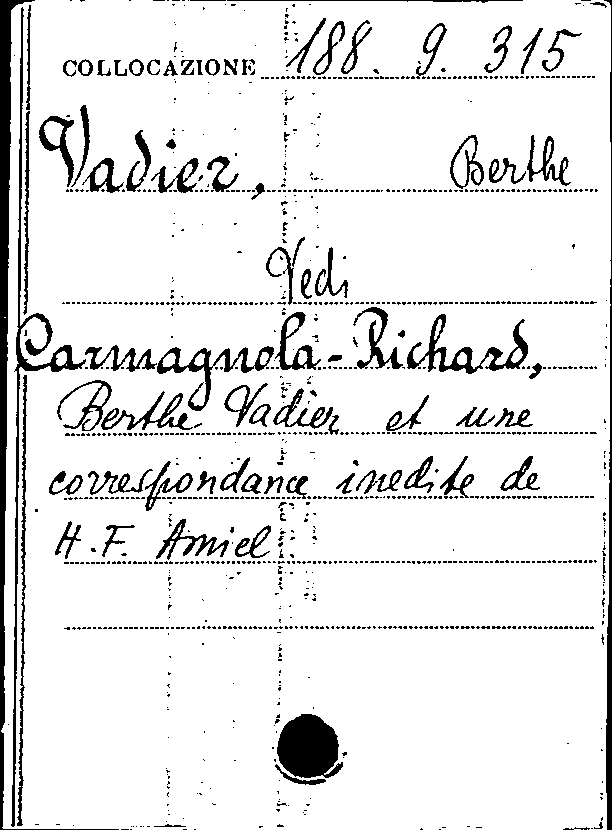 COLLOCAZIONE 188. 9. 315
Vadier, Berthe
Vedi
Carmagnola-Richard,
Berthe Vadier et une
correspondance inedite de
H.F. Amiel.